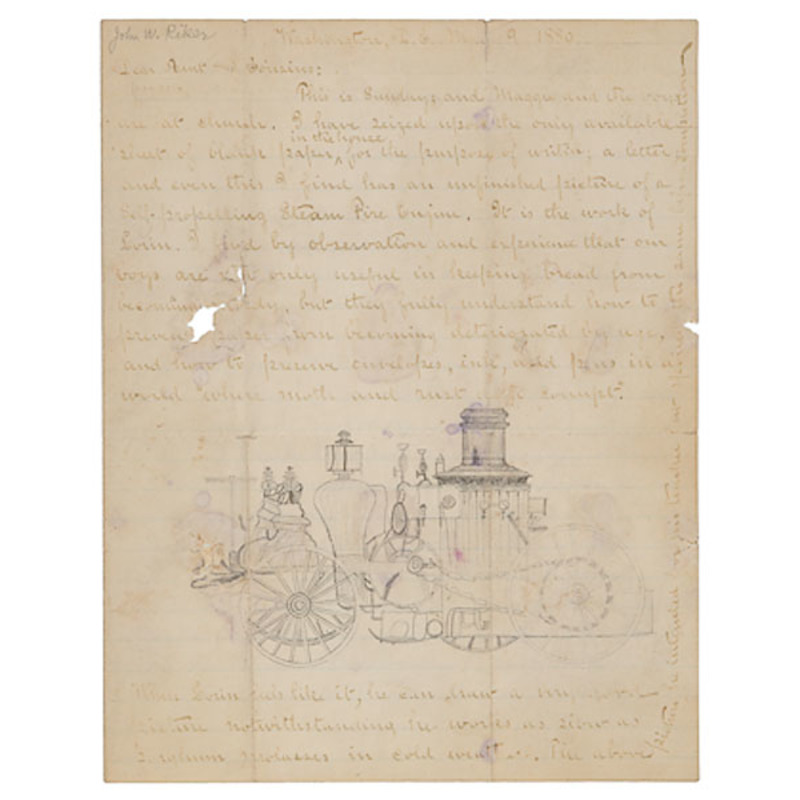 John W. Rikes
Washington, D. C. 9 1880.
Dear Aunt and Cousins:
This is Sunday, and Maggie and the boys
are at church. I have seized upon the only available
in the house
sheet of blank paper, for the purpose of writing a letter,
and even this I find has an unfinished picture of a
Self-propelling Steam Fire Engine. It is the work of
Lorin. I find by observation and experience that our
boys are not only useful in keeping bread from
becoming, but they fully understand how to
prevent paper from becoming deteriorated by use,
and how to preserve envelopes, ink, and pens in a
world "where moth and rust doth corrupt."
When Lorin feels like it, he can draw a
picture notwithstanding he works as slow as
molasses in cold weather. The above
picture he intended